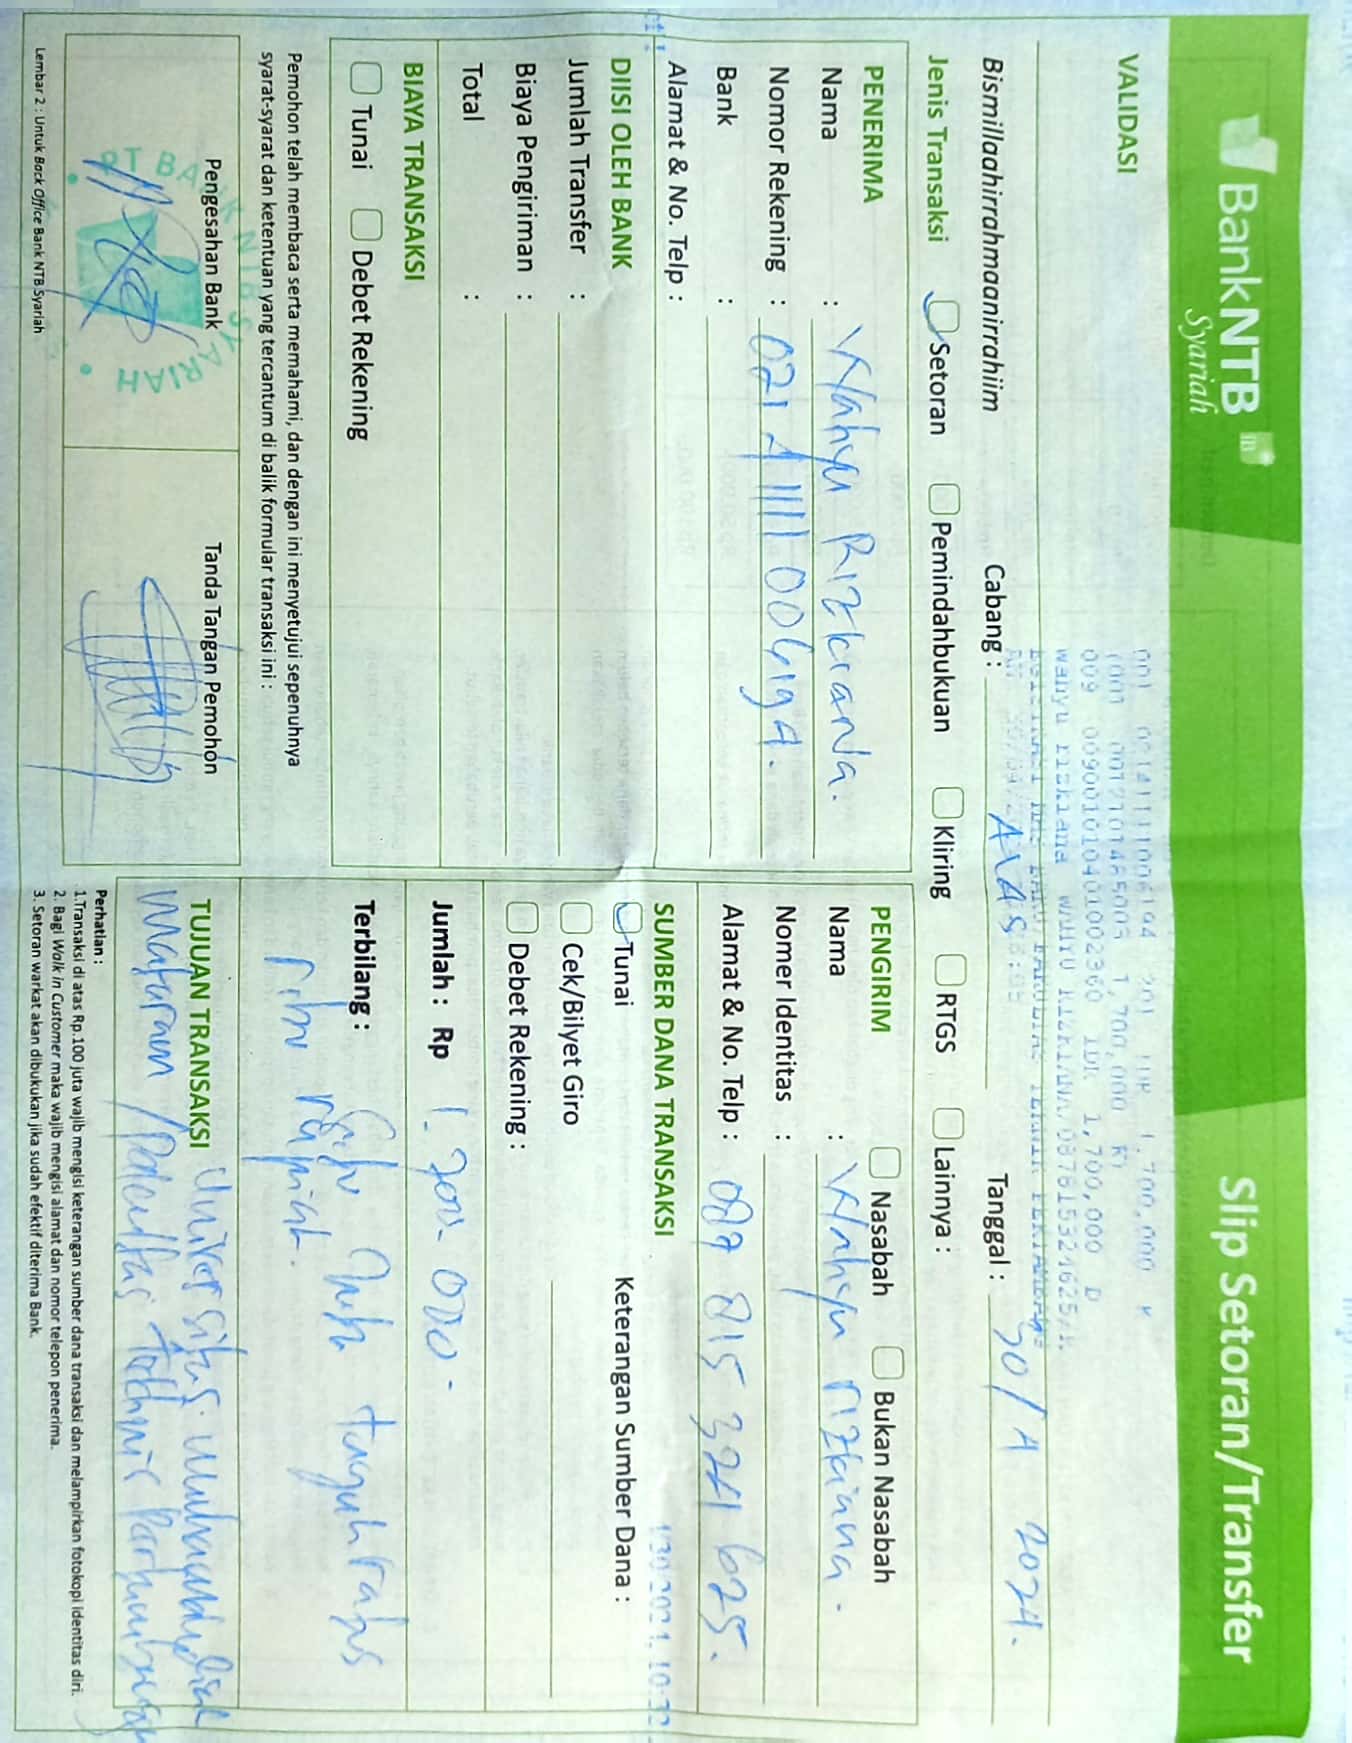 BankNTB
Syariah
Slip Setoran/Transfer
VALIDASI
1,700,000
1,700,000
009 009001010401002360 IDR 1,700,000 D
wahyu rizkiana WAHYU RIZKIANA/087815324625/
Bismillaahirrahmaanirrahiim
Cabang :
Tanggal : 30/4 2024.
Jenis Transaksi
Setoran
Pemindahbukuan
Kliring
RTGS
Lainnya :
PENERIMA
Nama : Wahyu Rizkiana.
Nomor Rekening : 02141111006194.
Bank :
Alamat & No. Telp :
PENGIRIM
Nasabah
Bukan Nasabah
Nama : Wahyu rizkiana.
Nomer Identitas :
Alamat & No. Telp : 087 815 324 625.
DIISI OLEH BANK
Jumlah Transfer :
Biaya Pengiriman :
Total :
SUMBER DANA TRANSAKSI
Tunai
Cek/Bilyet Giro
Debet Rekening :
Keterangan Sumber Dana :
BIAYA TRANSAKSI
Tunai
Debet Rekening
Jumlah : Rp 1.700.000.-
Terbilang : Satu Juta tujuh ratus
ribu rupiah.
Pemohon telah membaca serta memahami, dan dengan ini menyetujui sepenuhnya
syarat-syarat dan ketentuan yang tercantum di balik formular transaksi ini :
Pengesahan Bank
Tanda Tangan Pemohon
PT BANK NTB SYARIAH
TUJUAN TRANSAKSI Universitas Muhammadiah
Mataram /
Perhatian :
1.Transaksi di atas Rp.100 juta wajib mengisi keterangan sumber dana transaksi dan melampirkan fotokopi identitas diri.
2. Bagi Walk in Customer maka wajib mengisi alamat dan nomor telepon penerima.
3. Setoran warkat akan dibukukan jika sudah efektif diterima Bank.
Lembar 2 : Untuk Back Office Bank NTB Syariah